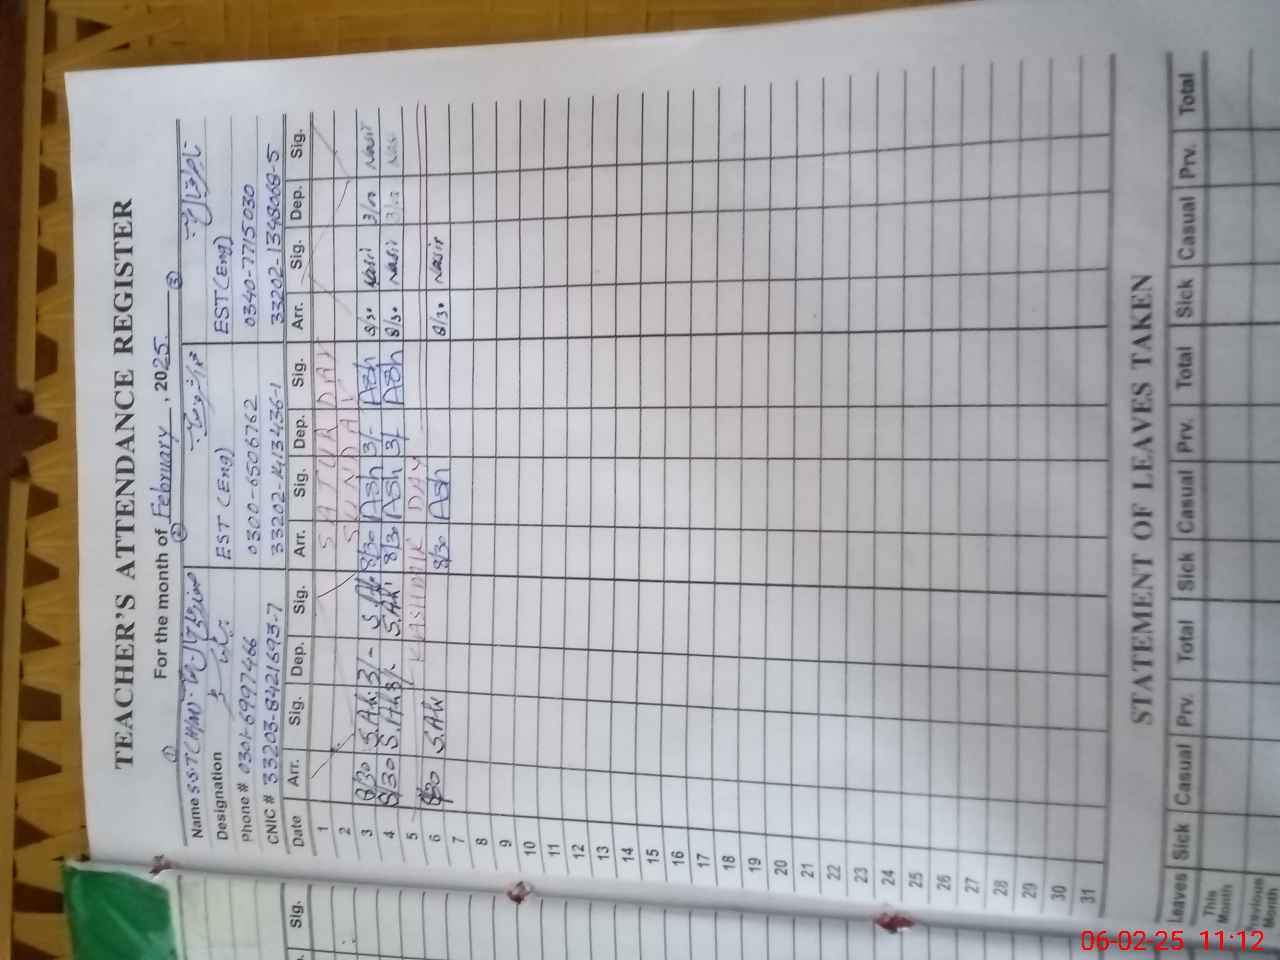 TEACHER'S ATTENDANCE REGISTER
For the month of February, 2025
① ② ③
Name S.S.T (M/M)
Designation EST (Eng) EST (Eng)
Phone # 0301-6997466 0300-6506762 0340-7715030
CNIC # 33203-8421693-7 33202-1413436-1 33202-1348068-5
Date Arr. Sig. Dep. Sig. Arr. Sig. Dep. Sig. Arr. Sig. Dep. Sig.
1 SATURDAY
2 SUNDAY
3 8/30 S.Ah 3/- S.Ah 8/30 ASh 3/- ASh 8/30 Nasir 3/00 Nasir
4 8/30 S.Ah 3/- S.Ah 8/30 ASh 3/- ASh 8/30 Nasir 3/00
5 KASHMIR DAY
6 8/30 S.Ah 8/30 ASh 8/30 Nasir
7
8
9
10
11
12
13
14
15
16
17
18
19
20
21
22
23
24
25
26
27
28
29
30
31
STATEMENT OF LEAVES TAKEN
Leaves Sick Casual Prv. Total Sick Casual Prv. Total Sick Casual Prv. Total
This Month
Previous Month
Sig.
06-02-25 11:12